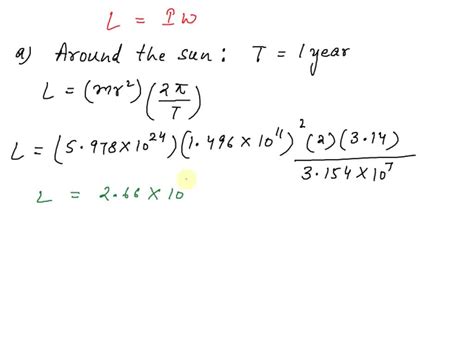 L = Iω
a) Around the sun : T = 1 year
L = (mr²) (2π/T)
L = (5.978 × 10²⁴) (1.496 × 10¹¹)² (2) (3.14) / 3.154 × 10⁷
L = 2.66 × 10